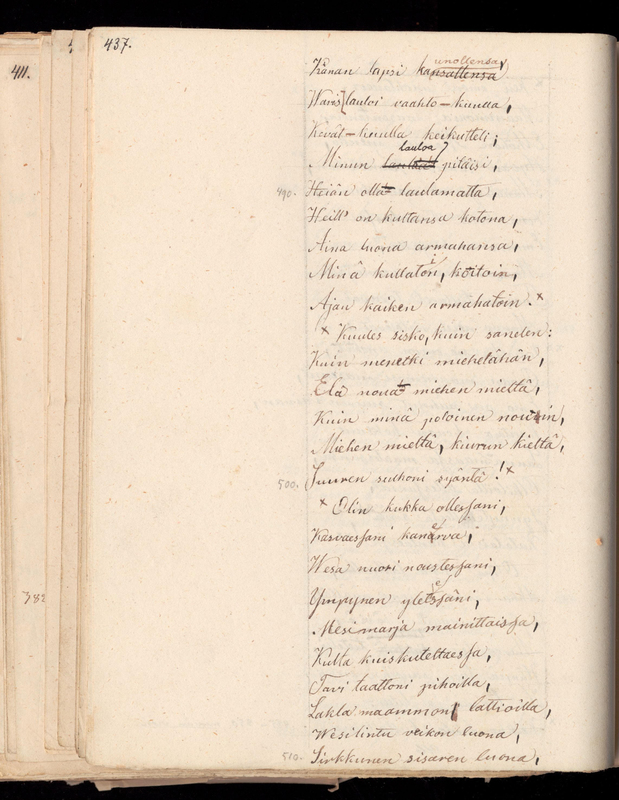 437.
411.
unottensa
Kånan lapsi kansattensa
Waris lauloi vaahto-kuulla,
Kevät-kuulla keikutteli;
laulaa
Minun pitäisi,
490. Heiän olla laulamatta,
Heill' on kultansa kotona,
Aina luona armahansa,
Minä kullatoin, kotoin,
Ajan kaiken armahatoin. ×
× Kuules sisko, kuin sanelen:
Kuin menetki miehelähän,
Elä noua miehen mieltä,
Kuin minä poloinen nouin,
Miehen mieltä, kiurun kieltä,
500. Suuren sulhoni syäntä! ×
× Olin kukka ollessani,
Kasvaessani kanerva,
Wesa nuori noustessani,
Ympynen yletessäni,
Mesimarja mainittaissa,
Kulta kuiskutettaessa,
Tavi taattoni pihoilla,
Lakla maammoni lattioilla,
Wesilintu veikon luona,
510. Sirkkunen sisaren luona,
782